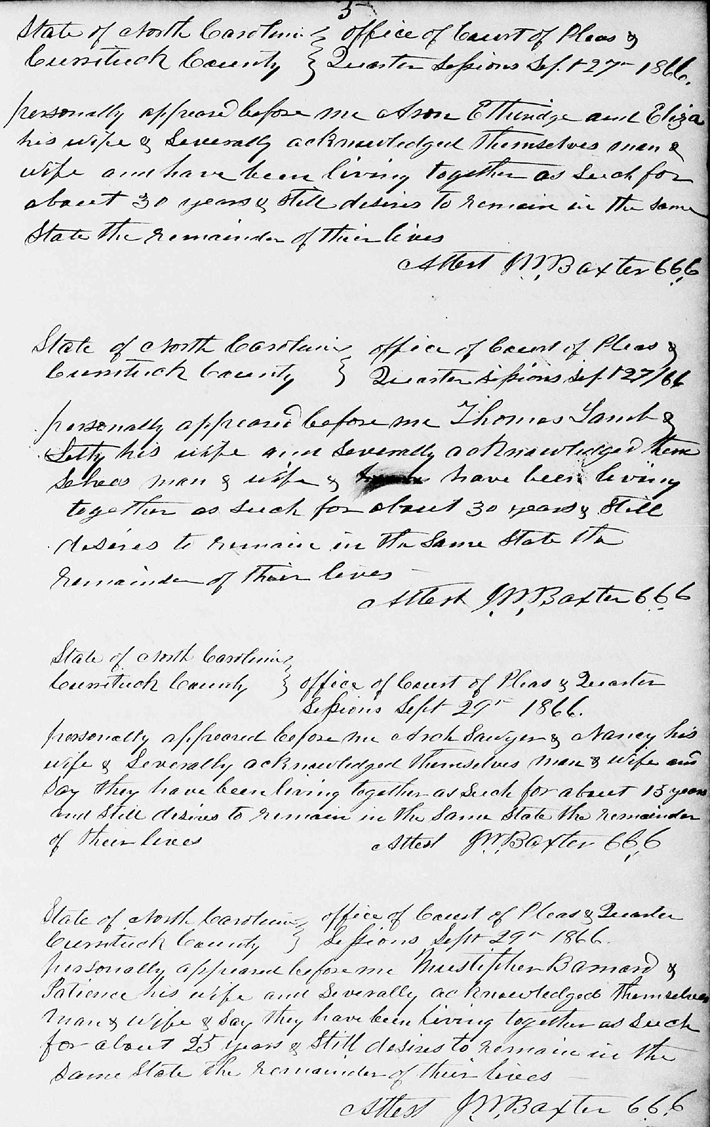 5
State of North Carolina } office of Court of Pleas &
Currituck County } Quarter Sessions Sept 27th 1866.
personally appeared before me Aron Ethridge and Eliza
his wife & Severally acknowledged themselves man &
wife and have been living together as Such for
about 30 years & Still desires to remain in the Same
State the remainder of their lives
Attest J.W. Baxter CCC
State of North Carolina } office of Court of Pleas &
Currituck County } Quarter Sessions Sept 27/66
personally appeared before me Thomas Lamb &
Letty his wife and Severally acknowledged them
selves man & wife & have been living
together as Such for about 30 years & Still
desires to remain in the Same State the
remainder of their lives
Attest J.W. Baxter CCC
State of North Carolina }
Currituck County } office of Court of Pleas & Quarter
Sessions Sept 29th 1866.
personally appeared before me Arch Sawyer & Nancy his
wife & Severally acknowledged themselves man & wife and
Say they have been living together as Such for about 15 years
and Still desires to remain in the Same State the remainder
of their lives Attest J.W. Baxter CCC
State of North Carolina } office of Court of Pleas & Quarter
Currituck County } Sessions Sept 29th 1866.
personally appeared before me Barnard &
Patience his wife and Severally acknowledged themselves
man & wife & Say they have been living together as Such
for about 25 years & Still desires to remain in the
Same State the remainder of their lives
Attest J.W. Baxter CCC